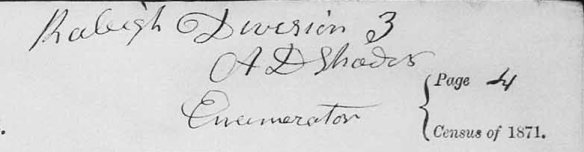 Raleigh Division 3
A D Shadd
Enumerator
Page 4
Census of 1871.